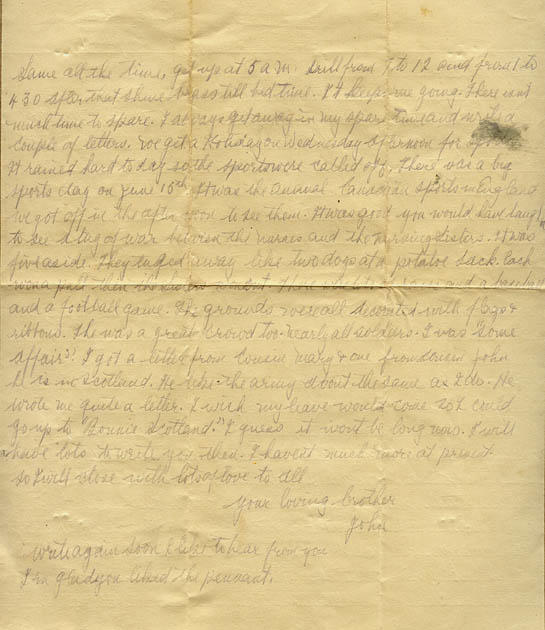 Same all the time, get up at 5 a m. drill from 7 to 12 and from 1 to
4 30 after that shine brass till bed time. It keeps me going. There isnt
much time to spare. I always get away in my spare time and write a
couple of letters. We get a Holiday on Wednesday afternoon for
It rained hard to day so the sports were called off. There was a big
sports day on June 15th. It was the annual Canadian sports in England
we got off in the after noon to see them. It was good you would have laughed
to see a tug of war between the nurses and the nursing sisters. It was
five aside. They tugged away like two dogs at a potatoe sack. Each
won a pull then the There and a baseball
and a football game. The grounds were all decorated with flags &
ribbons. The was a great crowd too. nearly all soldiers. I was "some
affair". I got a letter from cousin Mary & one from cousin John
is in Scotland. He likes the army about the same as I do. He
wrote me quite a letter. I wish my leave would come so I could
go up to "Bonnie Scotland." I guess it wont be long now. I will
have lots to write you then. I havent much more at present
so I will close with lots of love to all
Your loving brother
John
write again soon I like to hear from you
I'm glad you liked the pennant.